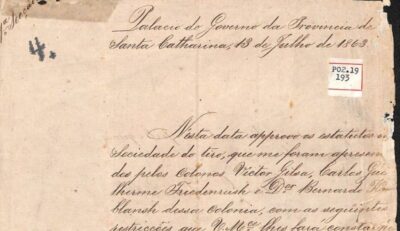 4.
Palacio do Governo da Provincia de
Santa Catharina, 13 de Julho de 1863.
P02.19
193
Nesta data approvo os estatutos
Sociedade do tiro, que me foram apresen
dos pelos colonos Victor Gilsa, Carlos Gui
lherme Friedenrush e Dor Bernardo
dessa colonia, com as seguintes
restricções, que V. Mce lhes fará constar